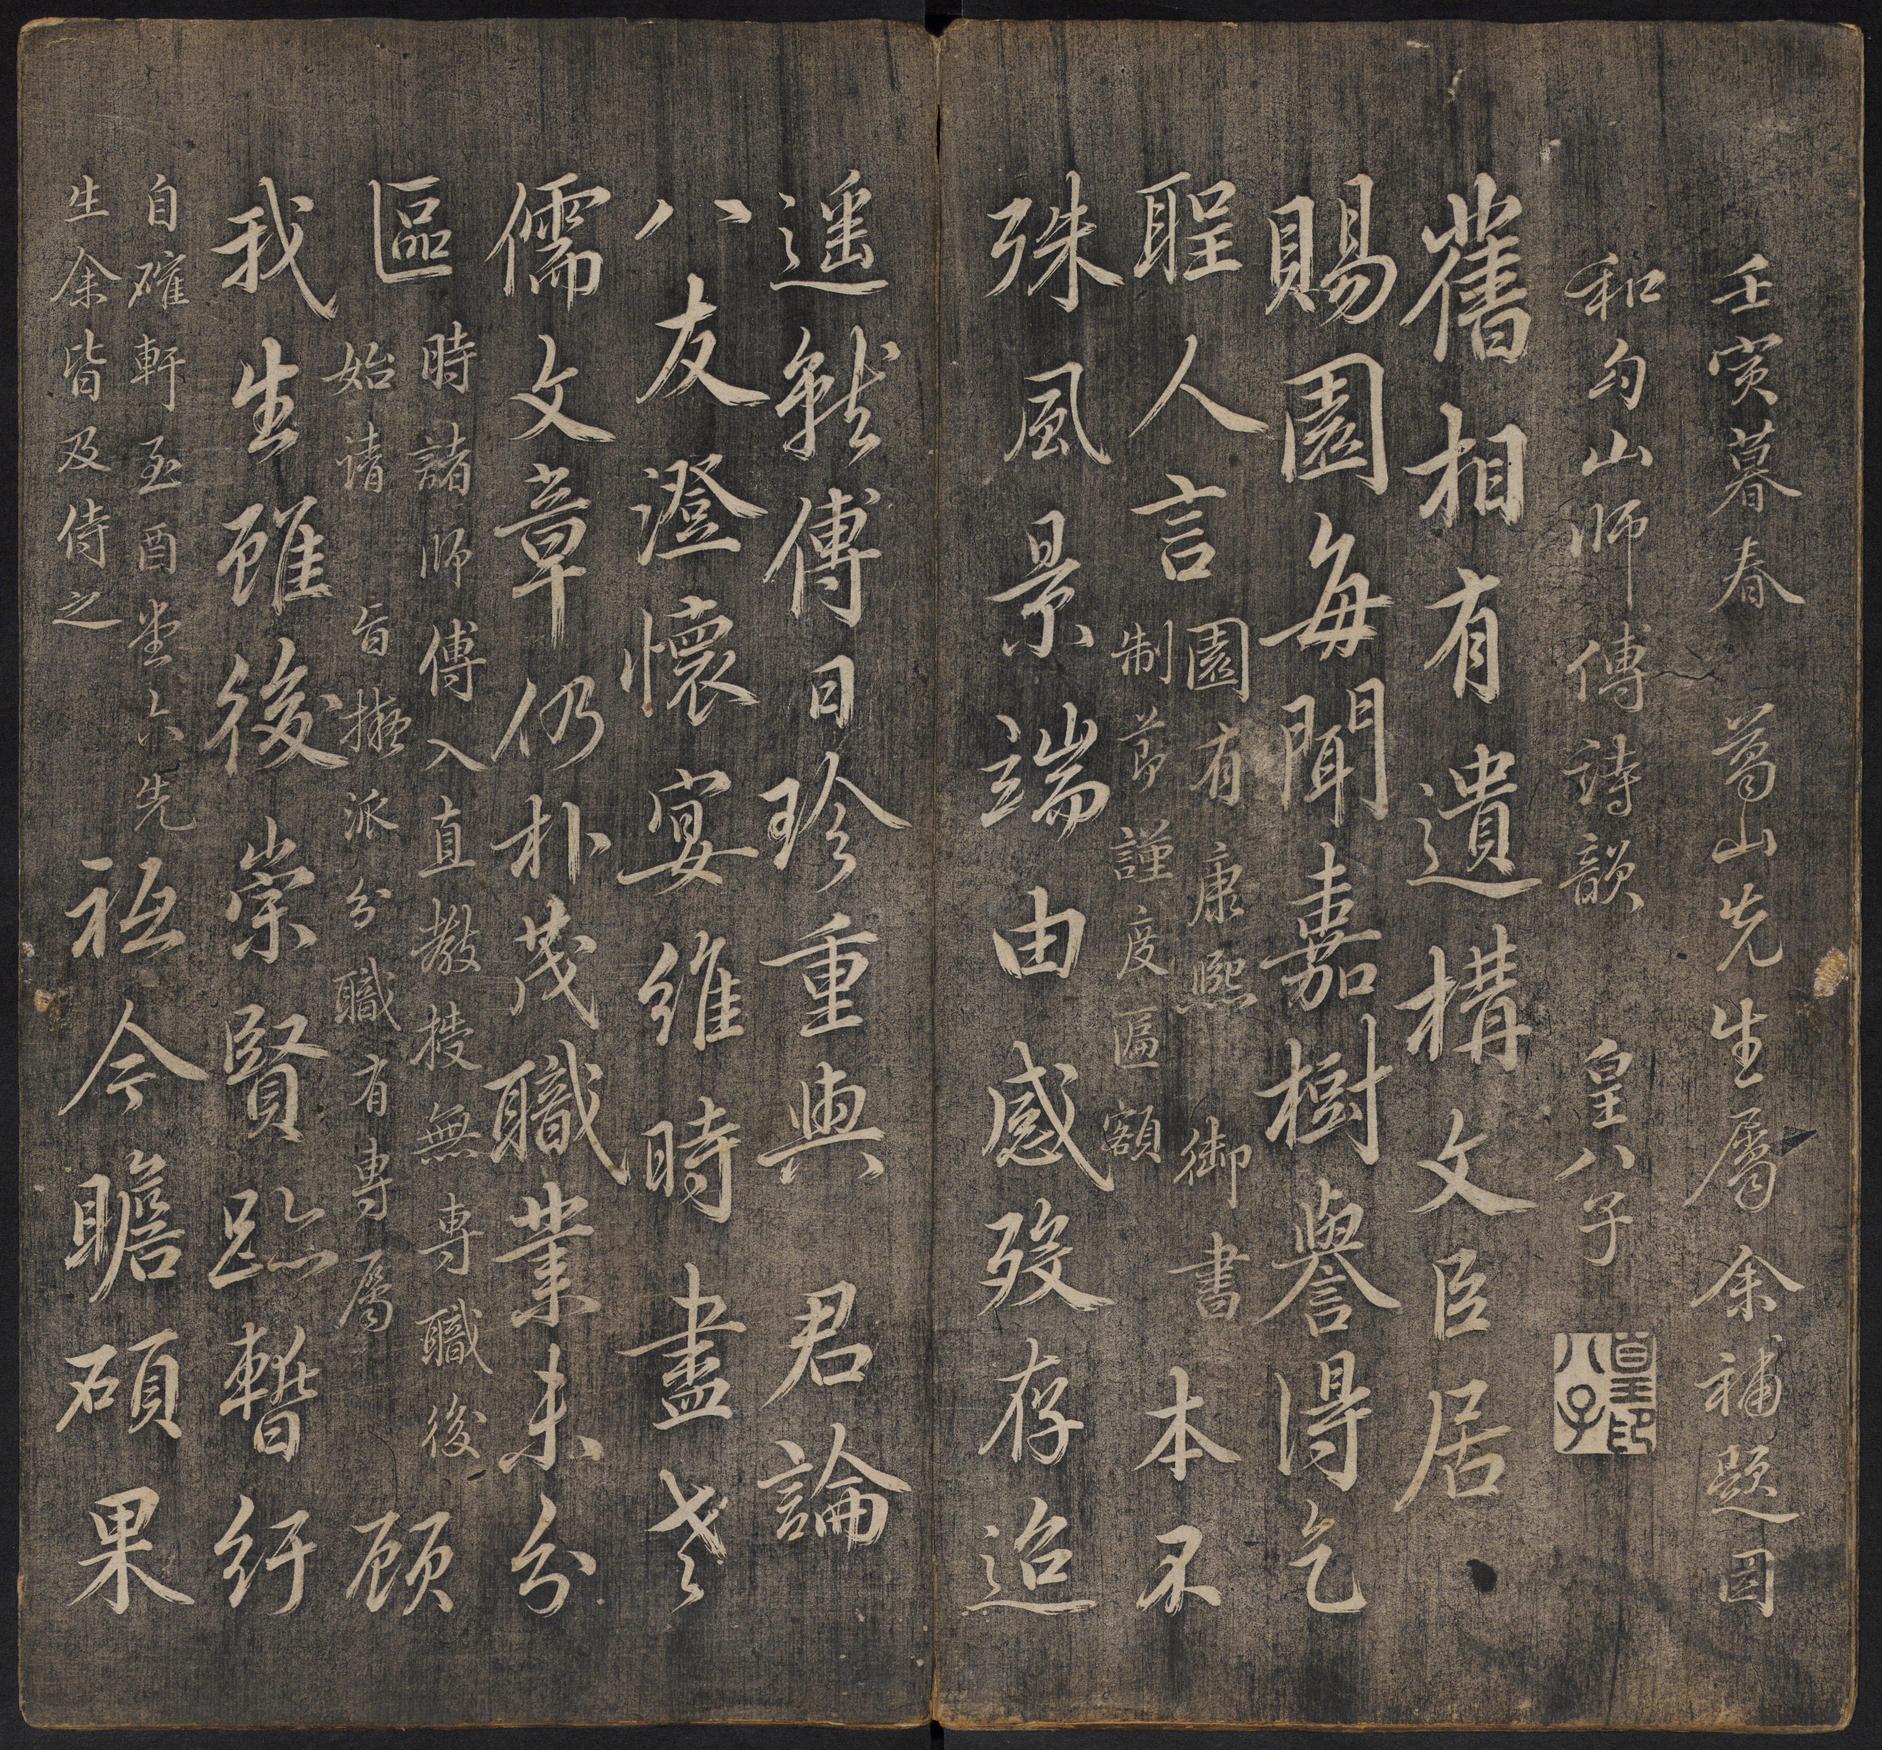 壬寅暮春 葛山先生屬余補題因
和勾山師傅詩韻 皇八子
皇八子印
舊相有遺構文臣居
賜園每聞嘉樹譽得乞
聖人言
園有康熙 御書
制節謹度匾額
本不
殊風景端由感歿存迢
遥就傅日珍重與 君論
八友澄懷宴維時盡老
儒文章仍朴茂職業未分
區
時諸師傅入直教授無專職後
始請 旨擬派分職有專屬
顧
我生雖後崇賢跡暫紆
自確軒至酉堂六先
生余皆及侍之
祗今瞻碩果